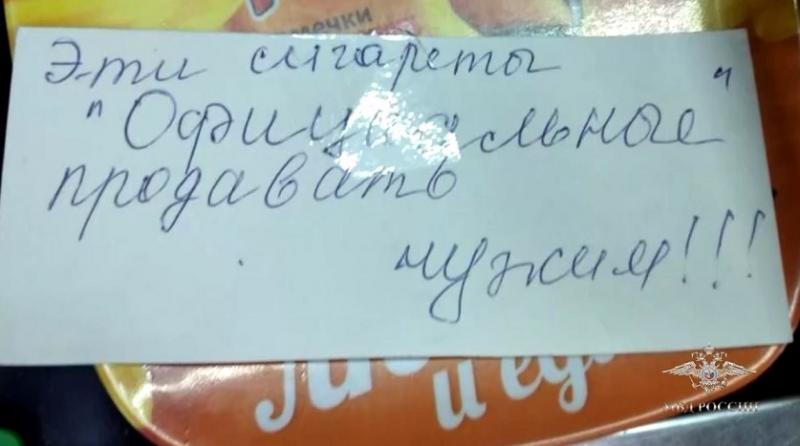 мечки
Эти сигареты
"Официальные"
продавать
чужим!!!
и ед
МВД РОССИИ